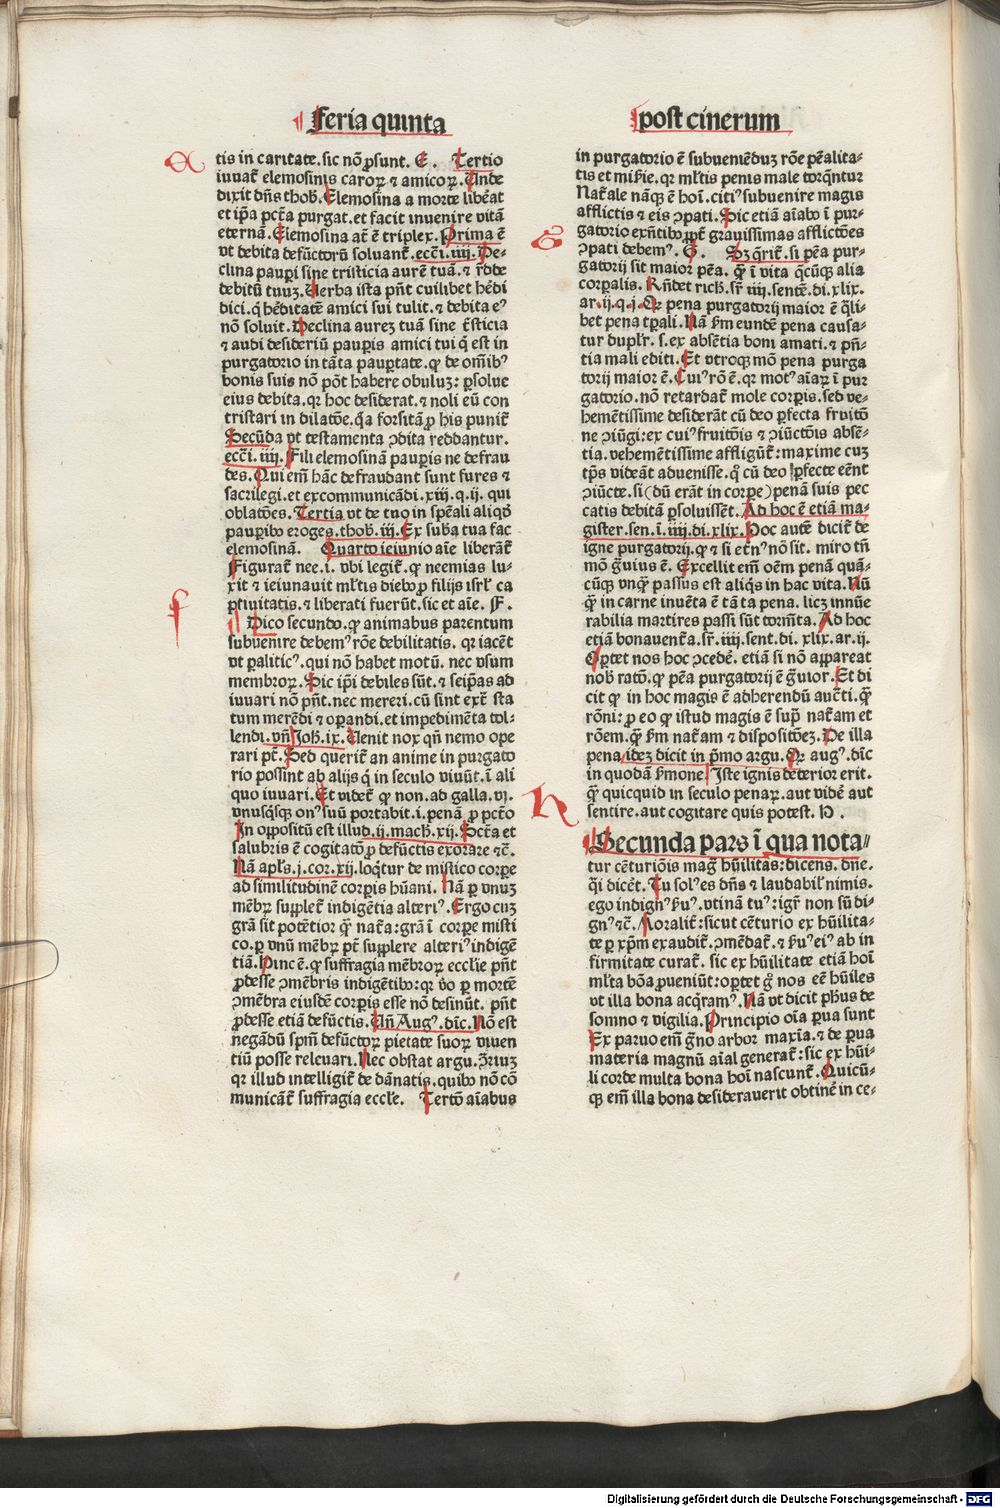 feria quinta
tis in caritate.sic nō ꝓsunt. E. Tertio
iuuat᷑ elemosinis caroꝝ ⁊ amicoꝝ.Unde
dixit dn̄s thob̓. Elemosina a morte lib̓eat
et ip̄a pct̄a purgat.et facit inuenire vitā
eternā. Elemosina at̄ ē triplex. Prima ē
vt debita defūctoꝝ soluant᷑.eccī.iiij. De-
clina pauꝑi sine tristicia aurē tuā.⁊ r̄dde
debitū tuuʒ.Uerba ista pn̄t cuilibet h̓edi
dici.q̇ h̓editatē amici sui tulit.⁊ debita eꝰ
nō soluit. Declina aureʒ tuā sine t᷑sticia
⁊ audi desideriū pauꝑis amici tui q̇ est in
purgatorio in tāta pauꝑtate.ꝙ de om̄ibꝰ
bonis suis nō pōt habere obuluʒ: ꝑsolue
eius debita.qꝛ hoc desiderat.⁊ noli eū con
tristari in dilatōe.q̄a forsitā ꝓ his punit᷑
Secūda vt testamenta ꝯdita reddantur.
eccī.iiij. Fili elemosinā pauꝑis ne defrau
des.Qui em̄ hāc defraudant sunt fures ⁊
sacrilegi.et excommunicādi.xiij.q.ij. qui
oblatōes. Tertia vt de tuo in spēali aliqd̓
pauꝑibꝰ eroges.thob̓.iiij.Ex suba tua fac
elemosinā. Quarto ieiunio aīe liberāt᷑
Figurat᷑ nee.i. vbi legit᷑.ꝙ neemias lu-
xit ⁊ ieiunauit ml̓tis diebꝰ ꝓ filijs isrl̓ ca
ptiuitatis.⁊ liberati fuerūt.sic et aīe. F.
Dico secundo.ꝙ animabus parentum
subuenire debemꝰ rōe debilitatis. qꝛ iacēt
vt ꝑaliticꝰ.qui nō habet motū. nec vsum
membroꝝ. Sic ip̄i debiles sūt.⁊ seip̄as ad
iuuari nō pn̄t.nec mereri.cū sint ext᷑ sta
tum merēdi ⁊ oꝑandi.et impedimēta tol-
lendi.vn̄ Joh̓.ix. Uenit nox qn̄ nemo ope
rari pt̄. Sed querit᷑ an anime in purgato
rio possint ab alijs q̇ in seculo viuūt.ī ali
quo iuuari. Et videt᷑ ꝙ non.ad galla.vj.
vnusq̇sqꝫ onꝰ suū portabit.i.penā ꝓ pctō
In oppositū est illud.ij.mach̓.xij. Sct̄a et
salubris ē cogitatō ꝓ defūctis exorare ⁊c̄.
Nā apl̓s.j.cor.xij.loq̇tur de mistico corꝑe
ad similitudinē corꝑis hūani. Nā ꝑ vnuʒ
mēbꝝ supplet᷑ indigētia alteriꝰ. Ergo cuʒ
grā sit potētior q̄ꝫ nat᷑a:grā ī corꝑe misti
co.ꝑ vnū mēbꝝ pt̄ supplere alteriꝰ indigē
tiā. Hinc ē.ꝙ suffragia mēbroꝝ ecclīe pn̄t
ꝓdesse ꝯmēbris indigētibꝰ:qꝛ v̓o ꝑ mortē
ꝯmēbra eiusdē corꝑis esse nō desinūt. pn̄t
ꝓdesse etiā defūctis.Un̄ Augꝰ.dīc. Nō est
negādū spm̄ defūctoꝝ pietate suoꝝ viuen
tiū posse releuari. Nec obstat argu. Prīuʒ
qꝛ illud intelligit᷑ de dānatis.quibꝰ nō cō
municāt᷑ suffragia eccl̓e. Tertō aīabus
post cinerum
in purgatorio ē subueniēduʒ rōne pēalita-
tis et mis̓ie.qꝛ ml̓tis penis male torq̄ntur
Nat᷑ale nāqꝫ ē hoī.citiꝰ subuenire magis
afflictis ⁊ eis ꝯpati. Sic etiā aīabꝰ ī pur-
gatorio exn̄tibꝰ ꝓpt᷑ grauissimas afflictōes
ꝯpati debemꝰ. G. Sʒ q̄rit᷑.si pēa pur-
gatorij sit maior pēa. q̄ꝫ ī vita q̄cūqꝫ alia
corꝑalis. Rn̄det rich̓.sr̄ iiij.sentē.di.xlix.
ar.ij.q.j.Qꝛ pena purgatorij maior ē q̄li-
bet pena tꝑali. Nā s̄m eundē pena causa-
tur dupl̓r. s.ex absētia boni amati.⁊ pn̄-
tia mali editi. Et vtroqꝫ mō pena purga
torij maior ē.Cuiꝰ rō ē.qꝛ motꝰ aīaꝝ ī pur
gatorio.nō retardat᷑ mole corꝑis.sed ve-
hemētissime desiderāt cū deo ꝑfecta fruitō
ne ꝯiūgi:ex cuiꝰ fruitōis ⁊ ꝯiūctōis absē-
tia.vehemētissime affligūt᷑:maxime cuʒ
tp̄s videāt aduenisse.q̊ cū deo ꝑfecte eēnt
ꝯiūcte.si(dū erāt in corꝑe)penā suis pec
catis debitā ꝑsoluissēt. Ad hoc ē etiā ma-
gister.sen.ī.iiij.di.xlix. Hoc autē dicit᷑ de
igne purgatorij.ꝙ ⁊ si et̓nꝰ nō sit. miro tn̄
mō g̓uius ē. Excellit em̄ oēm penā quā-
cūqꝫ vnq̄ꝫ passus est aliq̇s in hac vita. Nū
q̄ꝫ in carne inuēta ē tāta pena. licʒ innūe
rabilia martires passi sūt torm̄ta. Ad hoc
etiā bonauent᷑a.sr̄.iiij.sent.di.xlix.ar.ij.
Oꝑtet nos hoc ꝯcedē.etiā si nō appareat
nob̓ ratō.ꝙ pēa purgatorij ē g̓uior. Et di
cit ꝙ in hoc magis ē adherendū auct̄i.q̄ꝫ
rōni: ꝓ eo ꝙ istud magis ē sup̄ nat᷑am et
rōem.q̄ꝫ s̄m nat᷑am ⁊ dispositōeʒ. De illa
pena ideʒ dicit in pⁱmo argu. Qꝛ augꝰ.dīc
in quodā s̓mone. Iste ignis deterior erit.
q̄ꝫ quicquid in seculo penaꝝ.aut vidē aut
sentire.aut cogitare quis potest. H.
Secunda pars ī qua nota-
tur cēturiōis mag̓ hūilitas:dicens. dn̄e.
q̓i dicēt. Tu solꝰ es dn̄s ⁊ laudabil̓ nimis.
ego indignꝰ s̓uꝰ.vtinā tuꝰ:igr̄ non sū di-
gnꝰ ⁊c̄. Moralit᷑:sicut cēturio ex hūilita-
te ꝑ xp̄m exaudit᷑.ꝯmēdat᷑.⁊ s̓uꝰ eiꝰ ab in
firmitate curat᷑. sic ex hūilitate etiā hoī
ml̓ta bōa ꝓueniūt:oꝑtet g̊ nos eē hūiles
vt illa bona acq̇ramꝰ. Nā vt dicit ph̓us de
somno ⁊ vigilia. Principio oīa ꝑua sunt
Ex paruo em̄ g̓no arbor maxīa.⁊ de ꝑua
materia magnū aīal generat᷑:sic ex hūi-
li corde multa bona hoī nascunt᷑. Quicū-
qꝫ em̄ illa bona desiderauerit obtinē in ce-
Digitalisierung gefördert durch die Deutsche Forschungsgemeinschaft - DFG